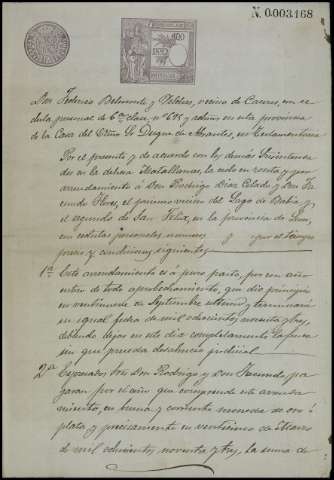 N. 0.003.168
Don Federico Belmonte y Vildósa, vecino de Cáceres, con cé-
dula personal de 6ª clase nº 645 y admor. en esta provincia
de la Casa del Excmo Sr Duque de Abrantes, en Testamentaria
Por el presente y de acuerdo con los demás
de la dehesa Matallanas, la cedo en renta y por
arrendamiento á Don Rodrigo Diaz Celado y Don Fa-
cundo Flores, el primero vecino del Lago de Babia y
el segundo de San Felix, en la provincia de Leon,
con cédulas personales, números y y por el tiempo
precio y condiciones siguientes
1ª Este arrendamiento es á puro pasto, por un año
entero de todo aprovechamiento, que dió principio
en veintinueve de Septiembre último y terminará
en igual fecha de mil ochocientos noventa y tres,
debiendo dejar en este dia completamente la finca
sin que preceda desahucio judicial
2ª Expresados Sres Don Rodrigo y Don Facundo pa-
garan por el año que comprende este arrenda-
miento, en buena y corriente moneda de oro ó
plata y precisamente en veinticinco de Marzo
de mil ochocientos noventa y tres, la suma de